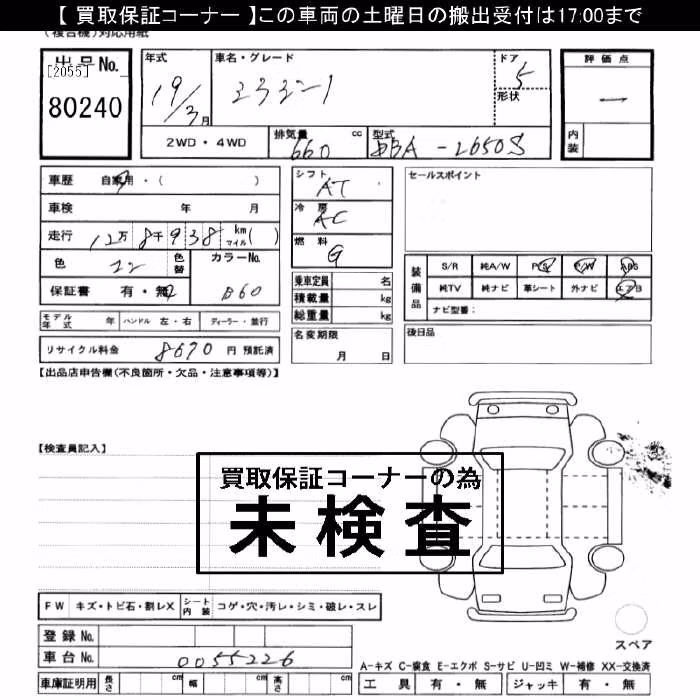 【 買取保証コーナー 】この車両の土曜日の搬出受付は17:00まで
(複合機)対応用紙
出品No.
[2055]
80240
年式
19/3月
車名・グレード
ドア
5
形状
評価点
内装
2WD・4WD
排気量 660 cc
型式 DBA-L650S
車歴 自家用・( )
車検 年 月
走行 12万 8千 938 km マイル( )
色 コン
色替
カラーNo. B60
保証書 有・無
シフト AT
冷房 AC
燃料 G
乗車定員 名
積載量 kg
総重量 kg
セールスポイント
装備品
S/R 純A/W P/S P/W ABS
純TV 純ナビ 革シート 外ナビ エアB
ナビ型番:
モデル年式 年 ハンドル 左・右 ディーラー・並行
リサイクル料金 8670 円 預託済
名変期限
月 日
後日品
【出品店申告欄(不良箇所・欠品・注意事項等)】
【検査員記入】
買取保証コーナーの為
未検査
FW キズ・トビ石・割レX シート内装 コゲ・穴・汚レ・シミ・破レ・スレ
登録No.
車台No. 0055226
車庫証明用 長さ cm 幅 cm 高さ cm
スペア
A-キズ C-腐食 E-エクボ S-サビ U-凹ミ W-補修 XX-交換済
工具 有・無 ジャッキ 有・無